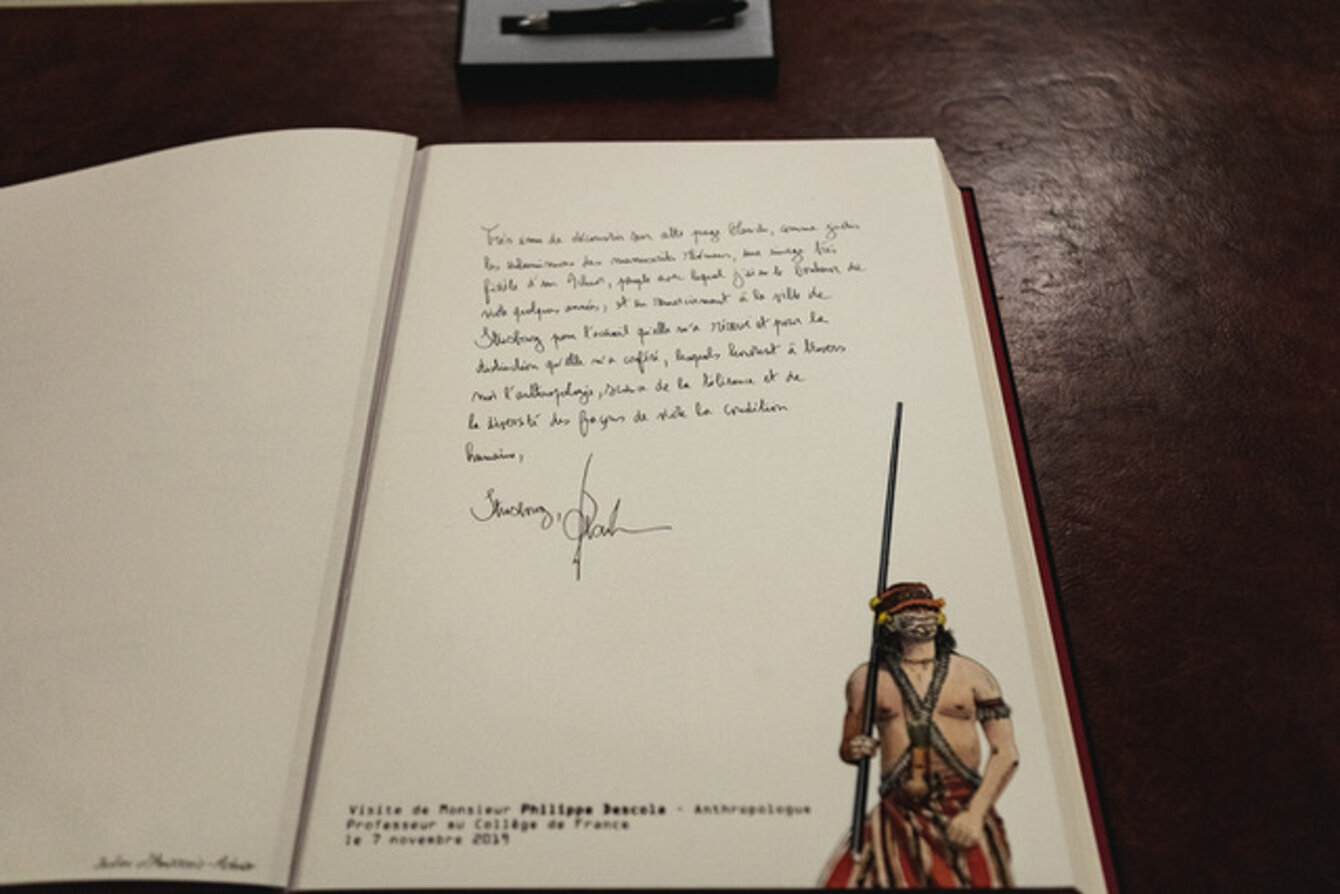 Très ému de découvrir sur cette page blanche, comme jadis
les enluminures des manuscrits rhénans, une image très
fidèle d'un Achuar, peuple avec lequel j'ai eu le bonheur de
vivre quelques années, et en remerciement à la ville de
Strasbourg pour l'accueil qu'elle m'a réservé et pour la
distinction qu'elle m'a conféré, lesquels honorent à travers
moi l'anthropologie, science de la tolérance et de
la diversité des façons de vivre la condition
humaine,
Strasbourg,
Visite de Monsieur Philippe Descola - Anthropologue
Professeur au Collège de France
le 7 novembre 2019